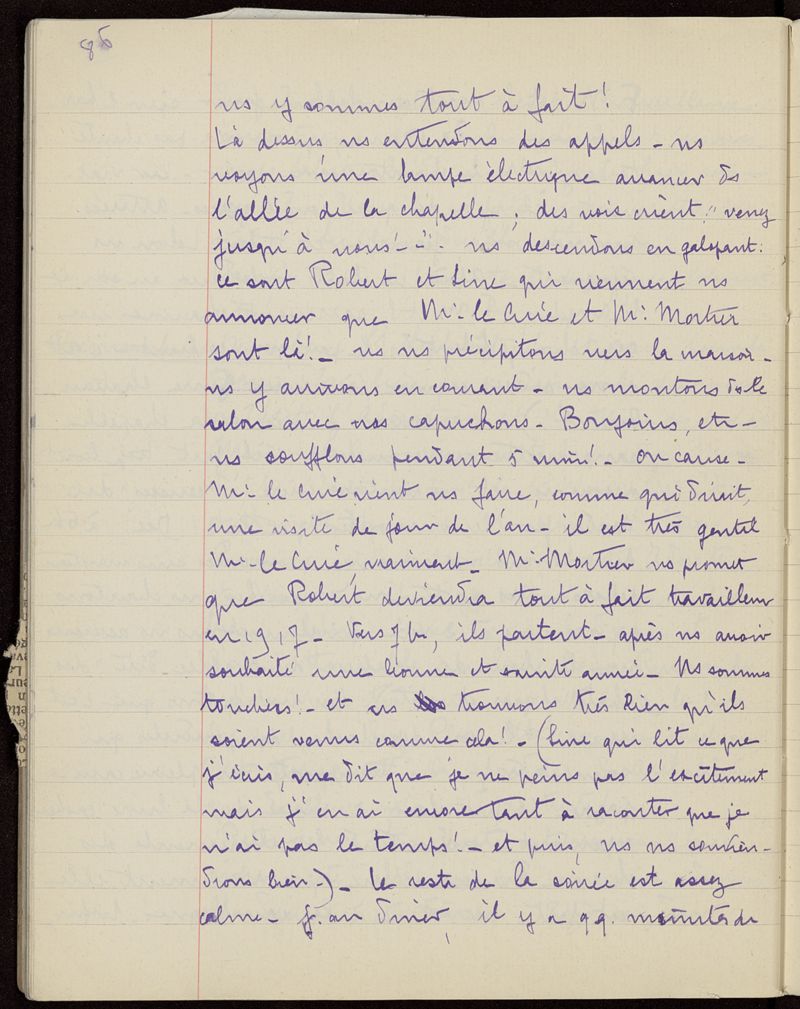 86
ns y sommes tout à fait !
Là dessus ns entendons des appels - ns
voyons une lampe électrique avancer ds
l'allée de la chapelle ; des voix crient : " venez
jusqu'à nous ! - " - ns descendons en galopant :
ce sont Robert et Line qui viennent ns
annoncer que Mr le Curé et Mr Mortier
sont là ! - ns ns précipitons vers la maison -
ns y arrivons en courant - ns montons ds le
salon avec nos capuchons - Bonjours, etc -
ns soufflons pendant 5 min ! - on cause -
Mr le Curé vient ns faire, comme qui dirait,
une visite de jour de l'an - il est très gentil
Mr le Curé, vraiment - Mr Mortier ns promet
que Robert deviendra tout à fait travailleur
en 1917 - Vers 7 h, ils partent - après ns avoir
souhaité une bonne et sainte année - Ns sommes
touchées ! - et ns trouvons très bien qu'ils
soient venus comme cela ! - (Line qui lit ce que
j'écris, me dit que je ne peins pas l'excitement
mais j'en ai encore tant à raconter que je
n'ai pas le temps ! - et puis, ns ns souvien-
drons bien -) - le reste de la soirée est assez
calme - au dîner, il y a qq. minutes de